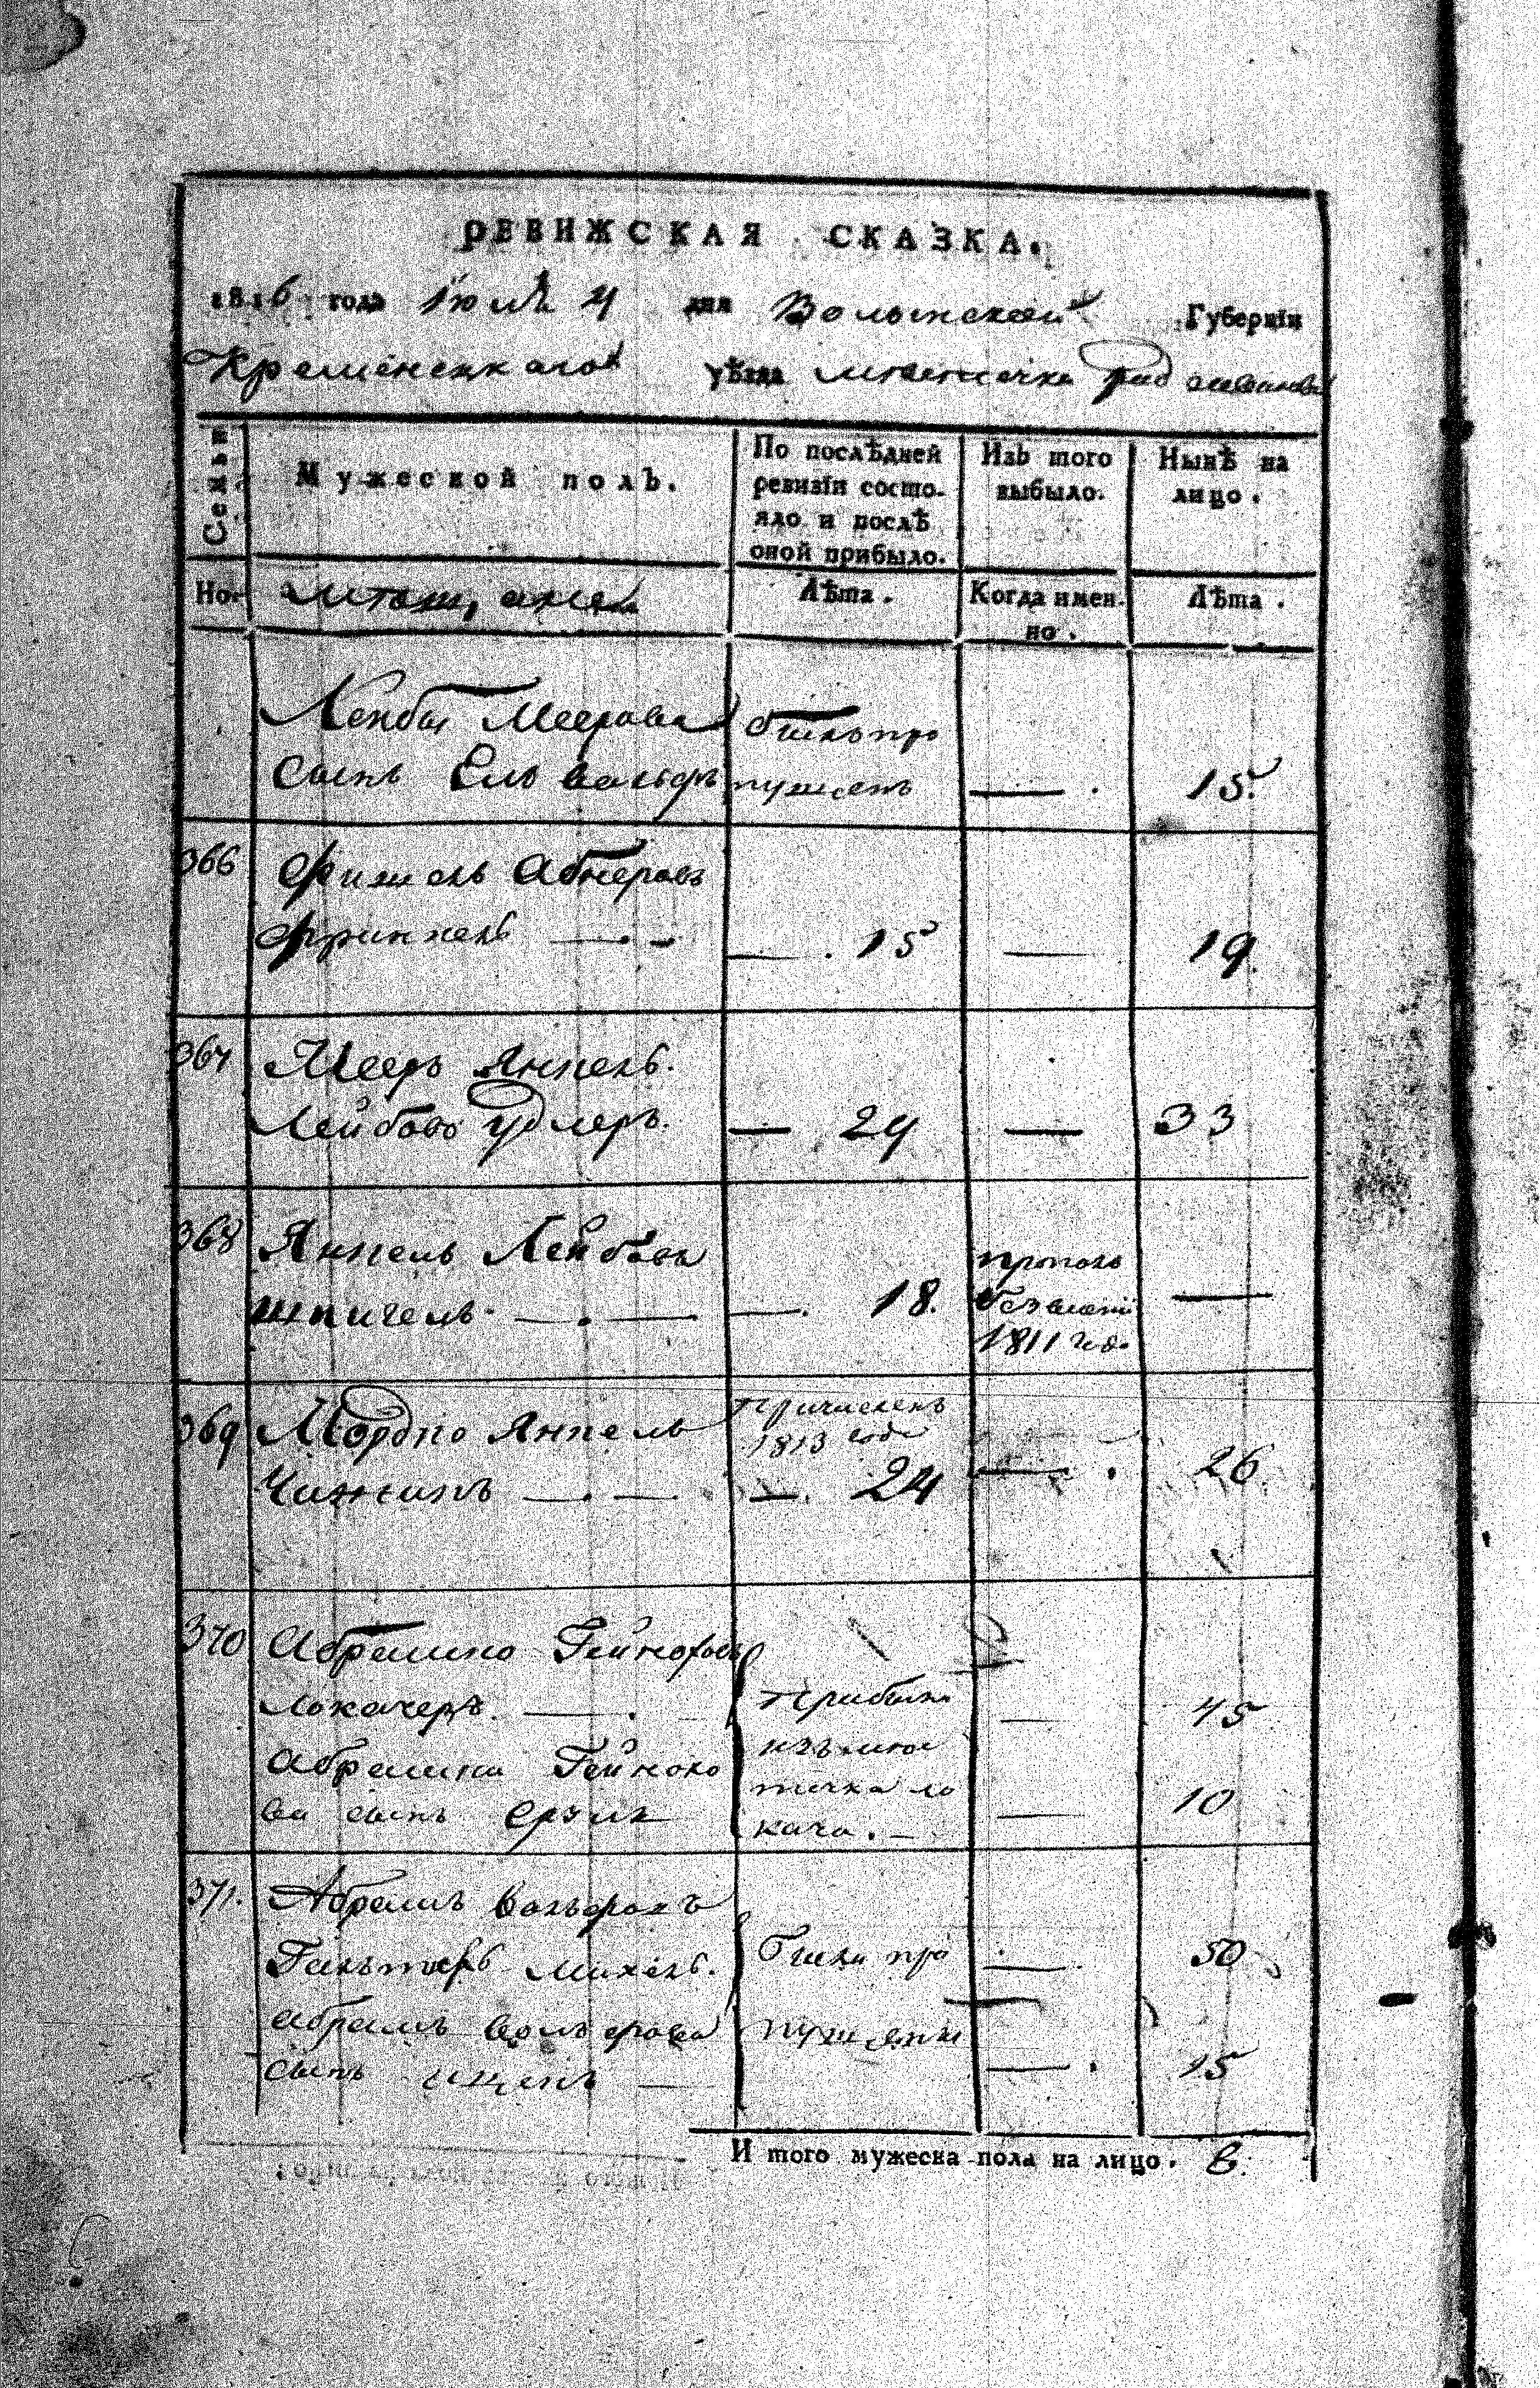 РЕВИЖСКАЯ СКАЗКА.
1816 года Іюля 4 дня Волынской Губерніи
Кременецкаго уѣзда местечка Радзивилова
Семьи
Мужеской полъ.
По послѣдней ревизіи состо-
яло и послѣ
оной прибыло.
Изъ того
выбыло.
Нынѣ на
лицо.
Но.
Лѣта.
Когда имен-
но.
Лѣта.
Лейбы Меерова
сынъ Ель Вольфъ
былъ про
пущенъ
— .
15.
366
Фишель Абнеровъ
— . –
— . 15
—
19.
367
Мееръ Янкель
Лейбовъ Удлеръ.
— 29
—
33
368
Янкель Лейбовъ
Шпигель — . —
— . 18.
1811 год.
—
369
Мордко Янкель
— . —
Причисленъ
1813 года
— . 24
— .
26.
370
Абрамко Гейноховъ
Локачеръ. — .
Абрамка Гейнохо
ва сынъ Срулъ
Прибыли
изъ мѣс
течка Ло
кача. –
—
45
—
10
371.
Абрамъ Вольфовъ
Михель.
Абрамъ Вольфова
сынъ —
Были про
пущены
—
50
— .
15
И того мужеска пола на лицо. 8.